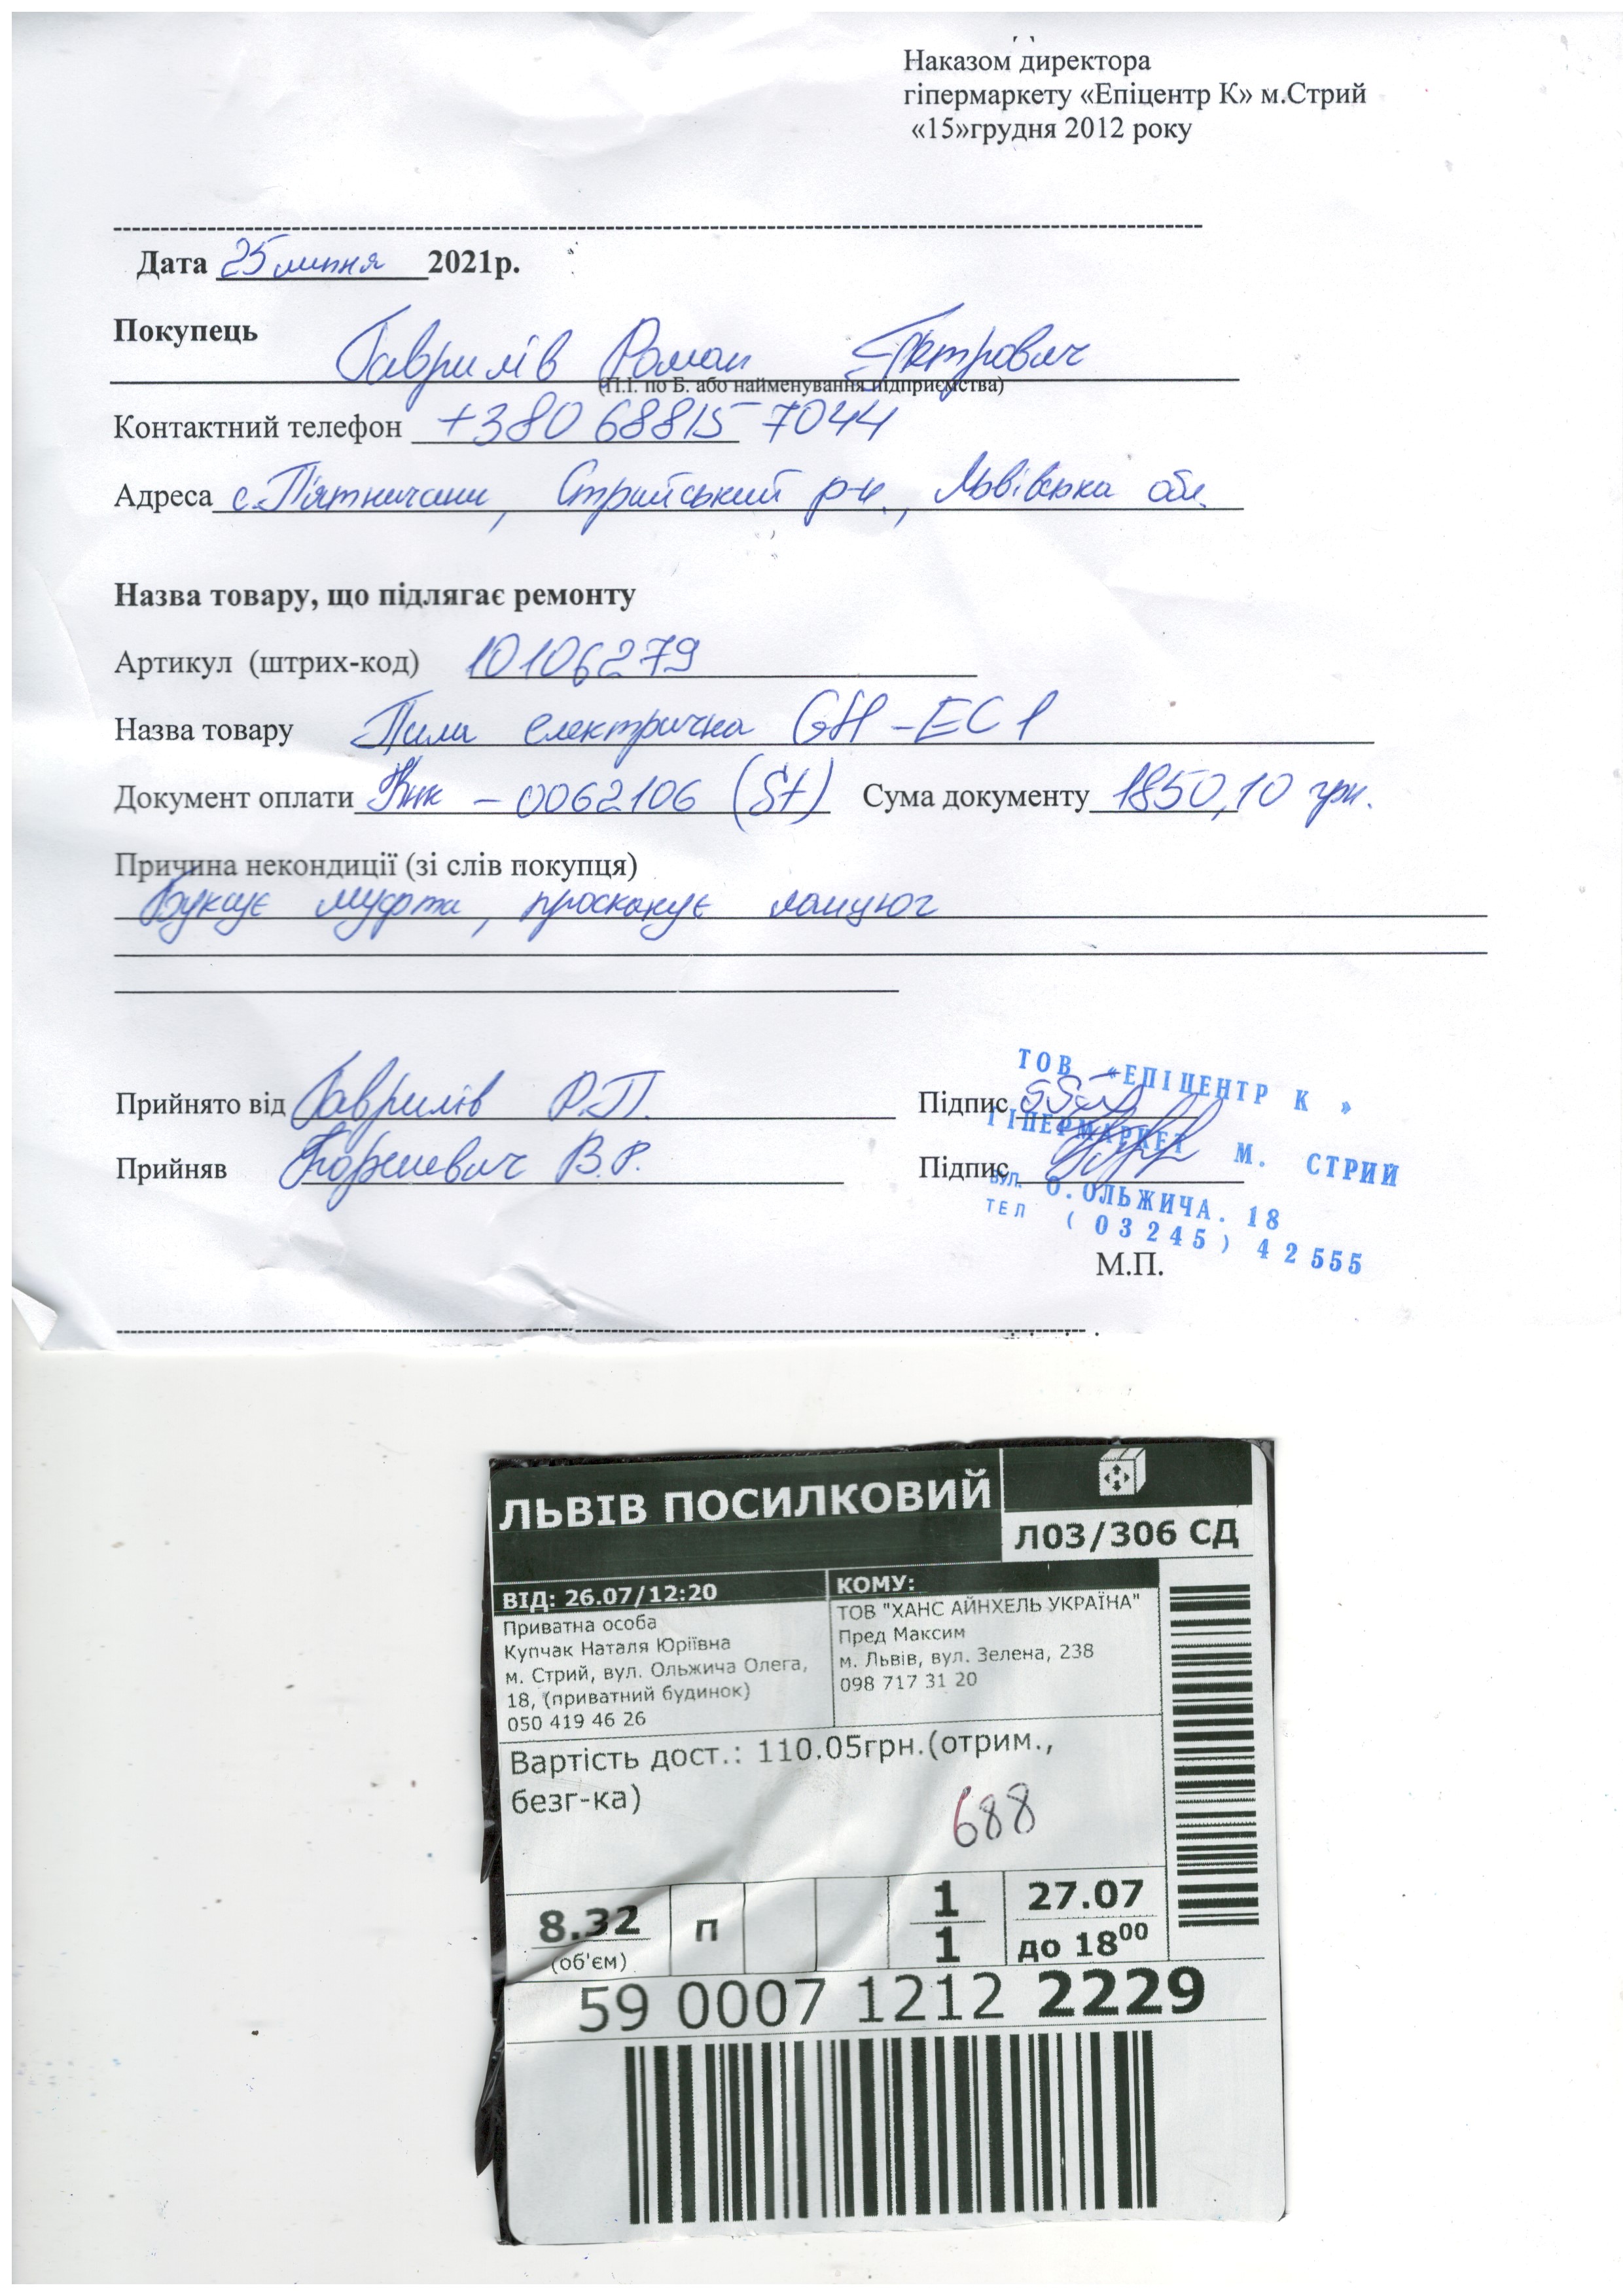 Наказом директора
гіпермаркету «Епіцентр К» м.Стрий
«15»грудня 2012 року
Дата 25 липня 2021р.
Покупець Гаврилів Роман Петрович
(П.І. по Б. або найменування підприємства)
Контактний телефон +380 68815 7044
Адреса с.П'ятничани, Стрийський р-н., Львівська обл.
Назва товару, що підлягає ремонту
Артикул (штрих-код) 10106279
Назва товару Пила електрична GH-EC 1
Документ оплати - 0062106 (St) Сума документу 1850,10 грн.
Причина некондиції (зі слів покупця)
Буксує муфта, проскакує ланцюг
Прийнято від Гаврилів Р.П. Підпис
Прийняв В.Р. Підпис
ТОВ «ЕПІЦЕНТР К »
ГІПЕРМАРКЕТ М. СТРИЙ
ВУЛ. О.ОЛЬЖИЧА. 18
ТЕЛ (03245) 42555
М.П.
ЛЬВІВ ПОСИЛКОВИЙ
Л03/306 СД
ВІД: 26.07/12:20
Приватна особа
Купчак Наталя Юріївна
м. Стрий, вул. Ольжича Олега,
18, (приватний будинок)
050 419 46 26
КОМУ:
ТОВ "ХАНС АЙНХЕЛЬ УКРАЇНА"
Пред Максим
м. Львів, вул. Зелена, 238
098 717 31 20
Вартість дост.: 110.05грн.(отрим.,
безг-ка)
688
8.32
(об'єм)
п
1
1
27.07
до 18⁰⁰
59 0007 1212 2229